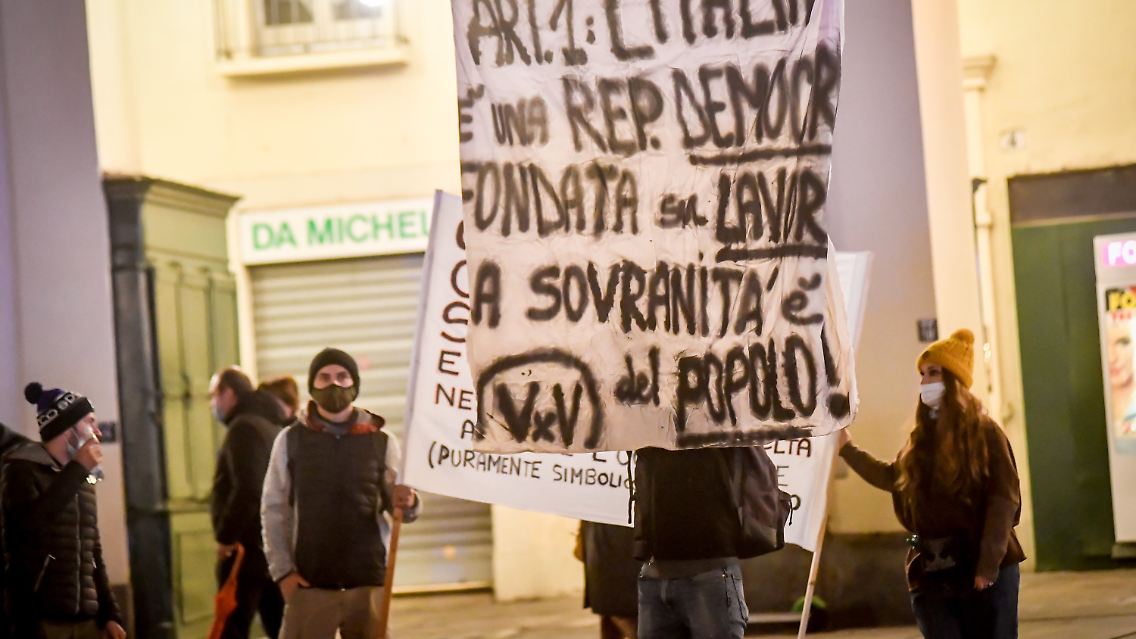 ART. 1: L'ITALIA
È UNA REP. DEMOCR
FONDATA su LAVOR
A SOVRANITÀ è
del POPOLO!
VxV
DA MICHEL
COSE
NE
(PURAMENTE SIMBOLIC
4
FO